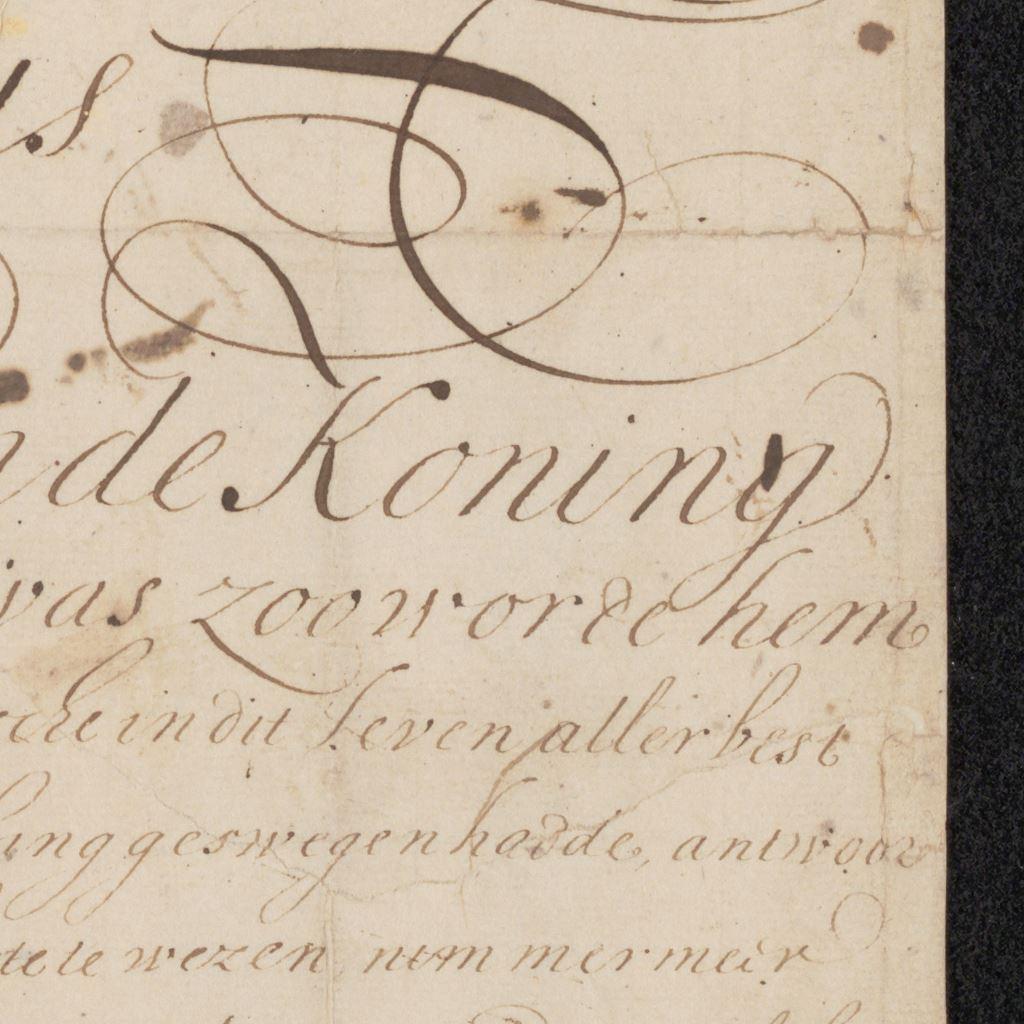 de Koning
was zoo worde hem
in dit Leven allerbest
lang geswegen hadde, antwoor
te wezen nimmermeer